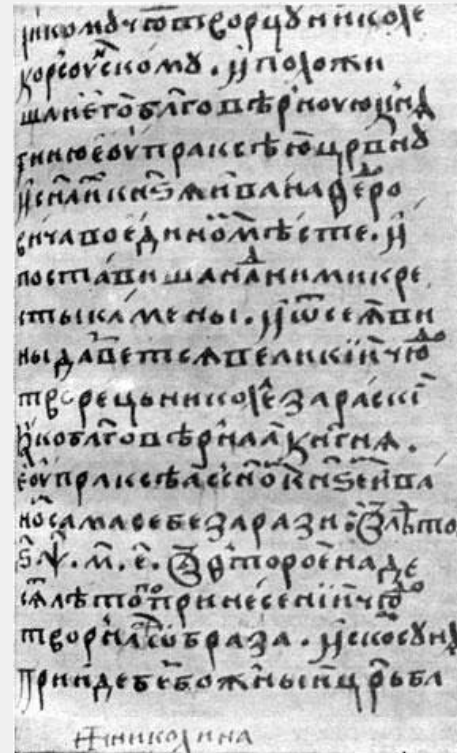 ликомꙋ чюⷣтворцꙋ николе
корсѹⷩскомꙋ. и положи
ша него бл҃говѣрнѹю кн҃ѧ
гиню еѹпраксѣю цр҃внꙋ
и сн҃а и кн҃ѕѧ ивана ѳеⷣро
вича воединоⷨ мѣсте. и
поставиша наⷣ ними кре
сты камены. и ѿ сеѧ ви
ны даветсѧ великїи чюⷣ
творець николе зараскїи
ꙗко бл҃говѣрнаа кн҃гнѧ.
еѹпраксѣа с сн҃оⷨ кн҃ѕеⷨ ива
ноⷨ сама себе зарази. в лѣто
ѕ҃. ѱ҃. м҃. е҃. второе на де
сѧ лѣто по принесении чюⷣ
творнаⷢ ѡбраза.
прииде беⷥбожныи цр҃ь ба
николина